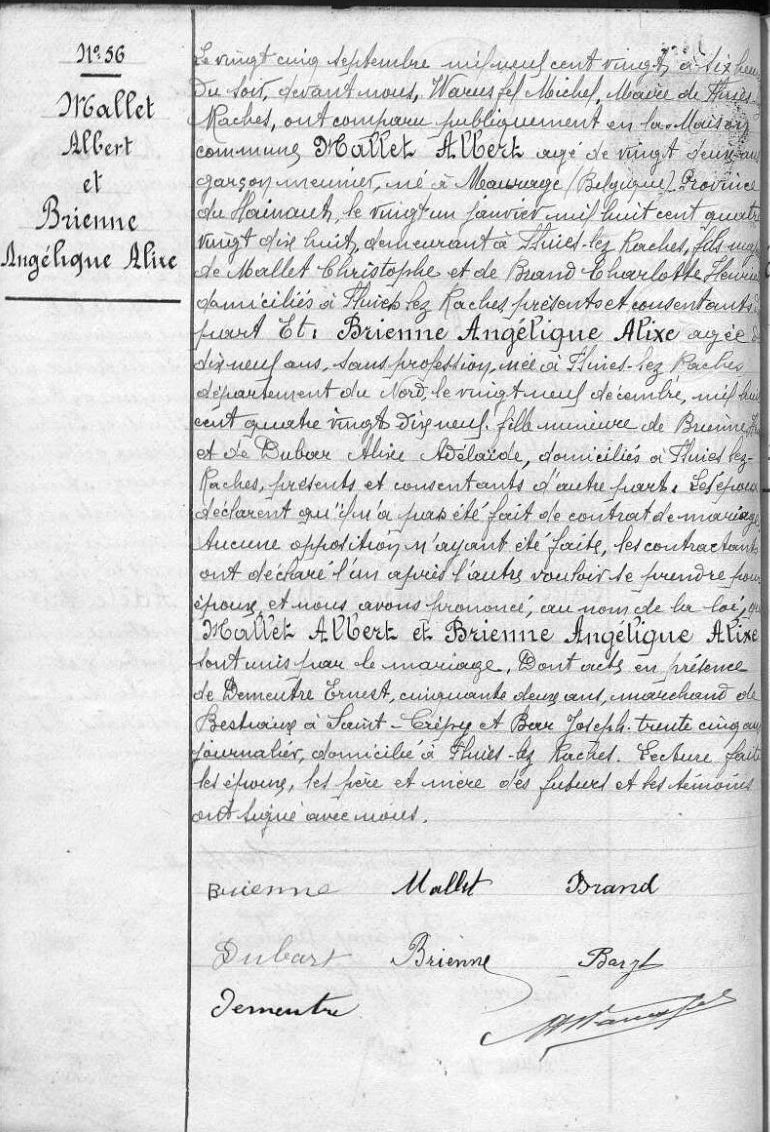 N° 56
Mallet
Albert
et
Brienne
Angélique Alixe
Le vingt cinq septembre mil neuf cent vingt, à six heu
du soir, devant nous, Warusfel Michel, Maire de Flines-
Raches, ont comparu publiquement en la Maison
commune, Mallet Albert agé de vingt deux ans
garçon meunier, né à Maurage (Belgique) Province
du Hainaut, le vingt un janvier mil huit cent quatre
vingt dix huit, demeurant à Flines-lez Raches, fils maj
de Mallet Christophe et de Brand Charlotte Henri
domiciliés à Flines-lez Raches, présents et consentants d
part Et: Brienne Angélique Alixe agée d
dix neuf ans, sans profession, née à Flines-lez Raches
département du Nord, le vingt neuf décembre, mil hui
cent quatre vingt dix neuf. fille mineure de Brienne
et de Dubar Alixe Adélaïde, domiciliés à Flines lez-
Raches, présents et consentants d'autre part. Les époux
déclarent qu'il n'a pas été fait de contrat de mariage
Aucune opposition n'ayant été faite, les contractants
ont déclaré l'un après l'autre vouloir se prendre pour
époux, et nous avons prononcé, au nom de la loi, que
Mallet Albert et Brienne Angélique Alixe
sont unis par le mariage. Dont acte en présence
de Dementre Ernest, cinquante deux ans, marchand de
Bestiaux à Saint-Crépy et Bar Joseph. trente cinq ans
journalier, domicilié à Flines-lez Raches. Lecture faite
les époux, les père et mère des futurs et les témoins
ont signé avec nous.
Brienne Mallet Brand
Dubart Brienne
Dementre